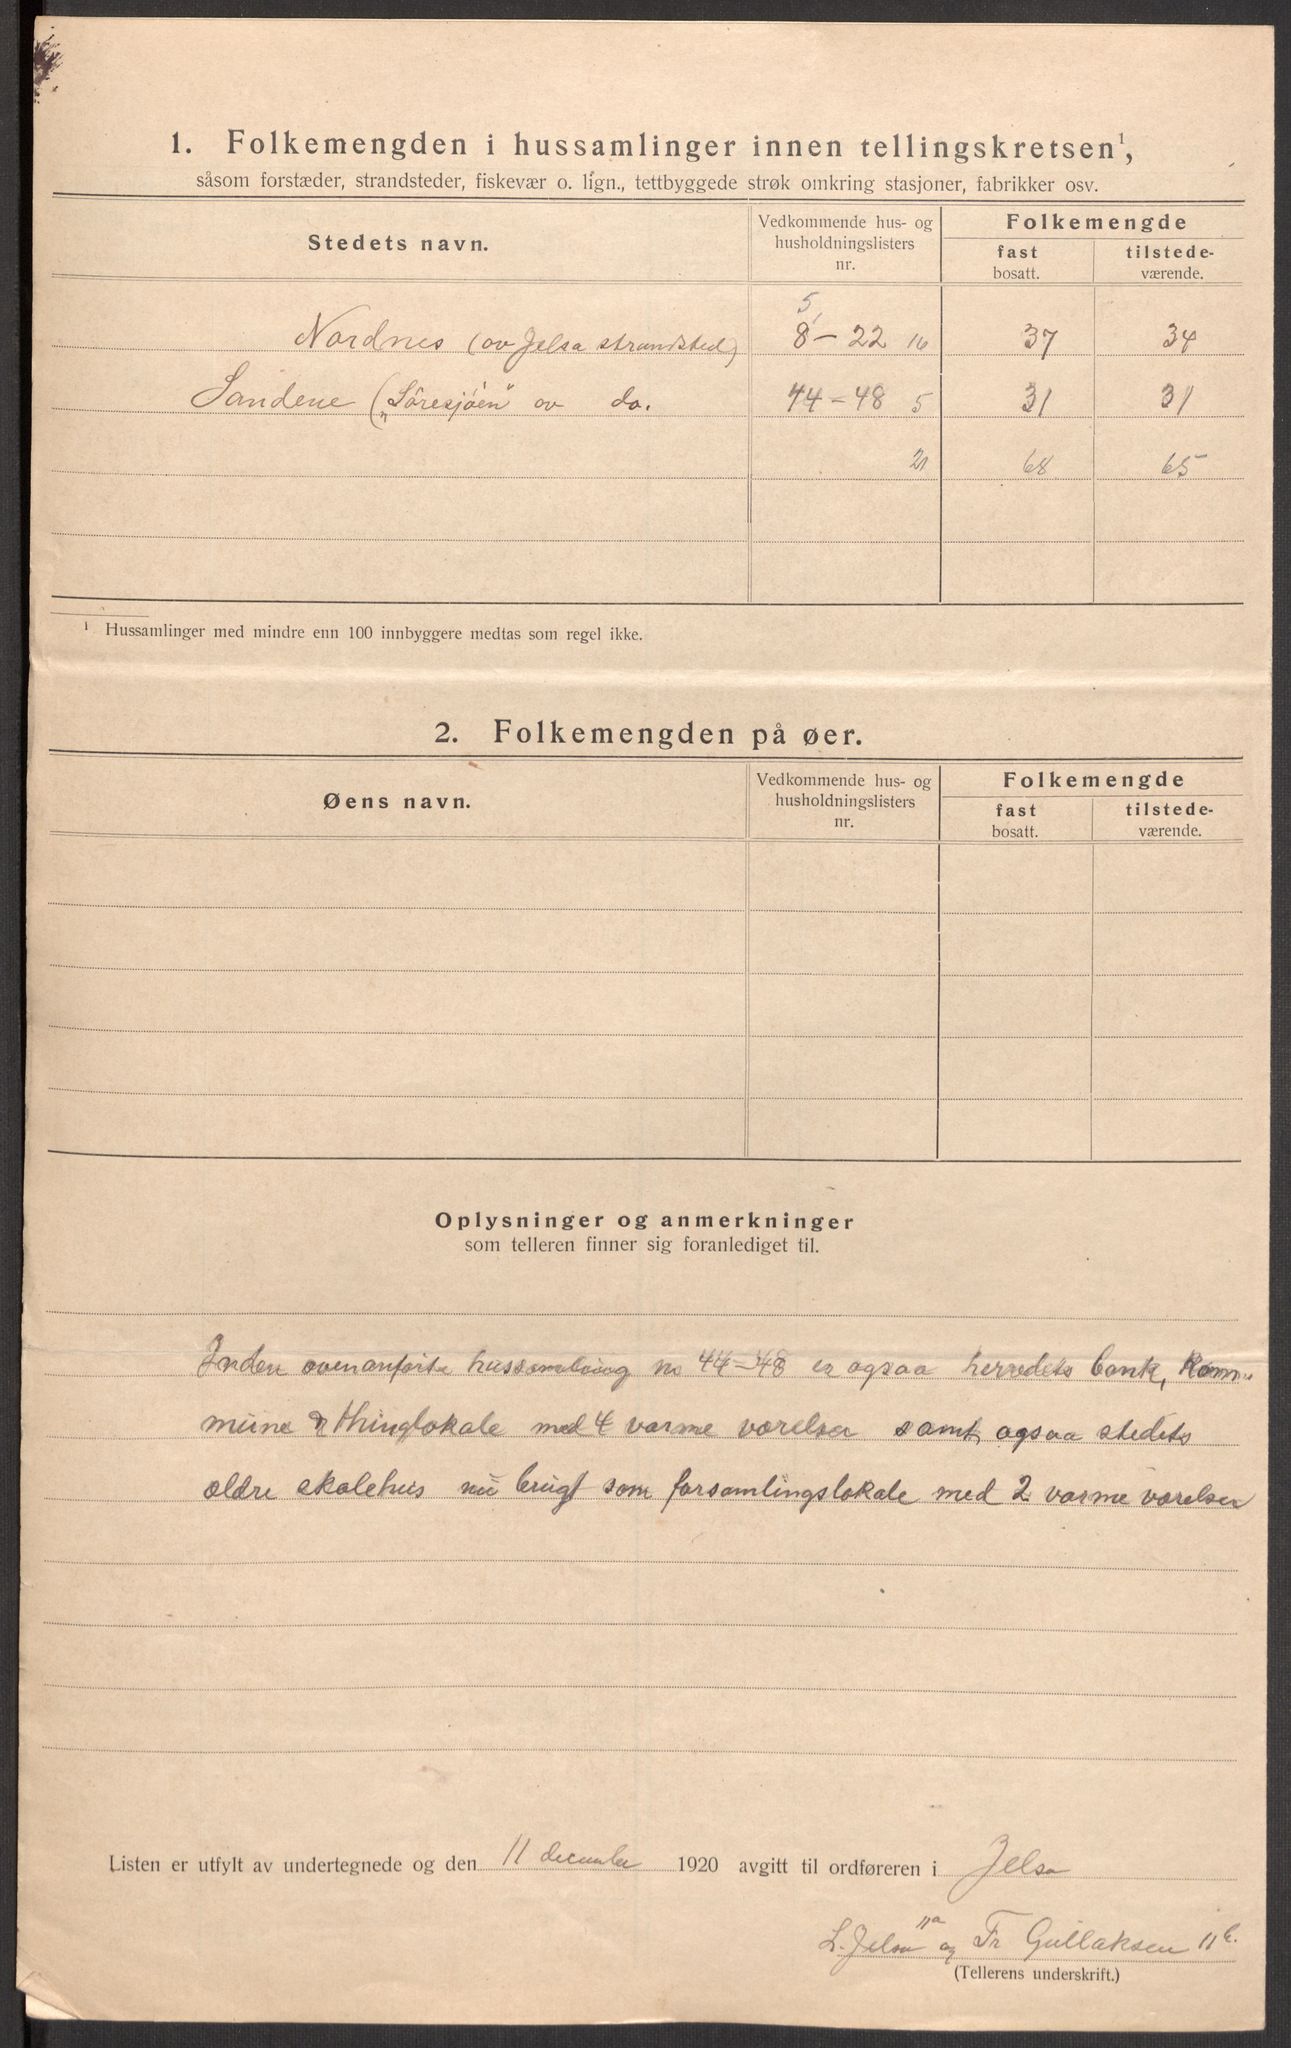 1. Folkemengden i hussamlinger innen tellingskretsen¹,
såsom forstæder, strandsteder, fiskevær o. lign., tettbyggede strøk omkring stasjoner, fabrikker osv.
Stedets navn. Vedkommende hus- og husholdningslisters nr. Folkemengde
fast bosatt. tilstede-værende.
5,
Nordnes (av Jelsa strandsted) 8 – 22 16 37 34
Sandene („Söresjöen" av do. 44 – 48 5 31 31
21 68 65
¹ Hussamlinger med mindre enn 100 innbyggere medtas som regel ikke.
2. Folkemengden på øer.
Øens navn. Vedkommende hus- og husholdningslisters nr. Folkemengde
fast bosatt. tilstede-værende.
Oplysninger og anmerkninger
som telleren finner sig foranlediget til.
Inden ovenanförte hussamling no 44–48 er ogsaa herredets bank, Kom-
mune & thinglokale med 4 varme værelser samt ogsaa stedets
ældre skolehus nu brugt som forsamlingslokale med 2 varme værelser
Listen er utfylt av undertegnede og den 11 december 1920 avgitt til ordføreren i Jelsa
L. Jelsa 11a og Fr Gullaksen 11b.
(Tellerens underskrift.)